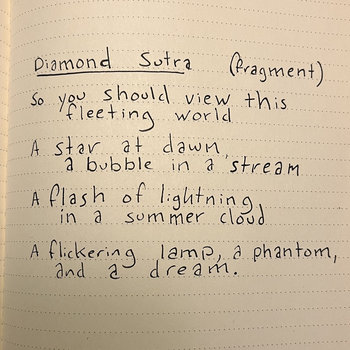 Diamond Sutra (fragment)
So you should view this
fleeting world
A star at dawn,
a bubble in a stream
A flash of lightning
in a summer cloud
A flickering lamp, a phantom,
and a dream.